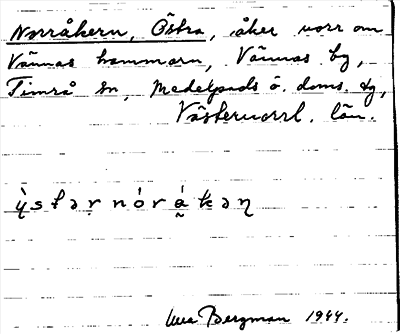 Norråkern, Östra, åker norr om
Vännäs hammarn, Vännäs by,
Timrå sn, Medelpads ö. doms. dg,
Västernorrl. län.
Bergman 1944.